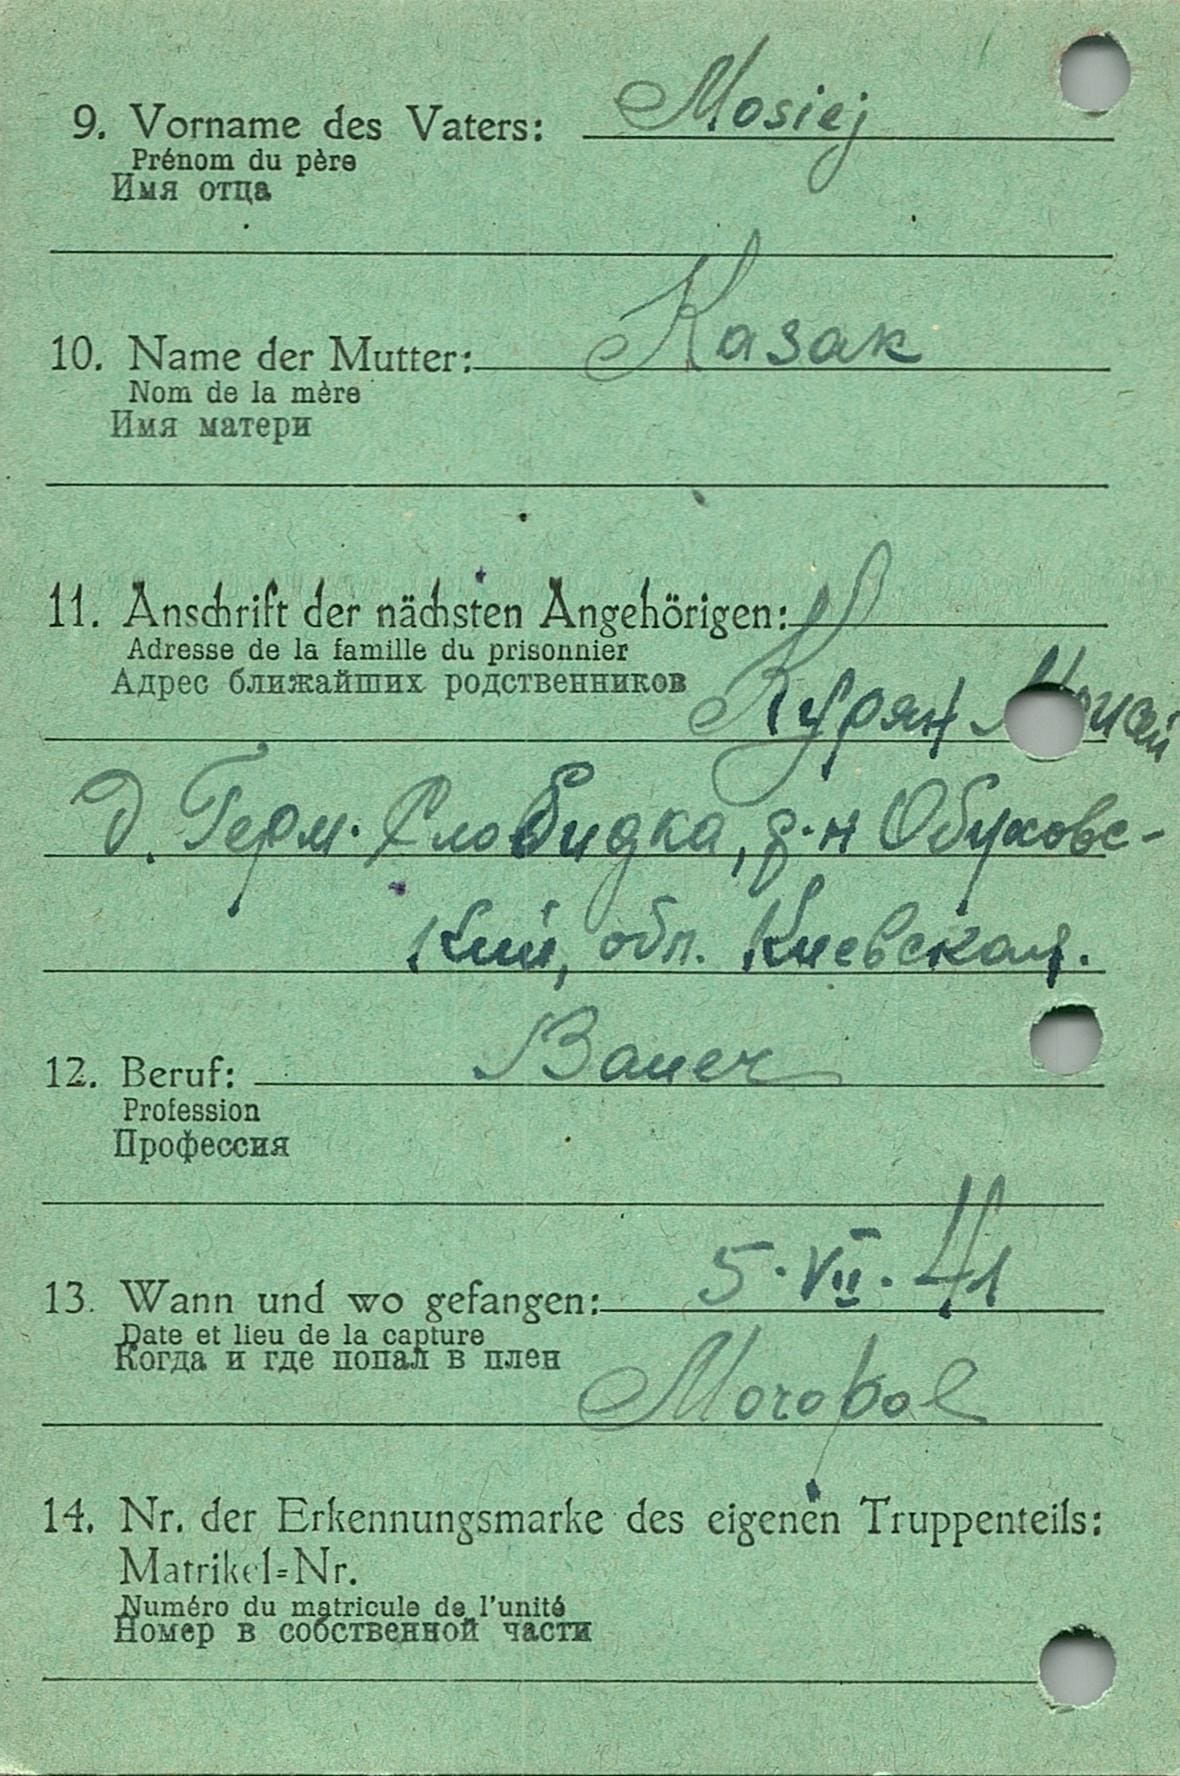 9. Vorname des Vaters: Mosiej
Prénom du père
Имя отца
10. Name der Mutter: Kasak
Nom de la mère
Имя матери
11. Anschrift der nächsten Angehörigen:
Adresse de la famille du prisonnier
Адрес ближайших родственников Курян
д. Герм. Слобидка, р-н Обуховс-
кий, обл. Киевская.
12. Beruf: Bauer
Profession
Профессия
13. Wann und wo gefangen: 5. VII. 41
Date et lieu de la capture
Когда и где попал в плен
14. Nr. der Erkennungsmarke des eigenen Truppenteils:
Matrikel=Nr.
Numéro du matricule de l'unité
Номер в собственной части